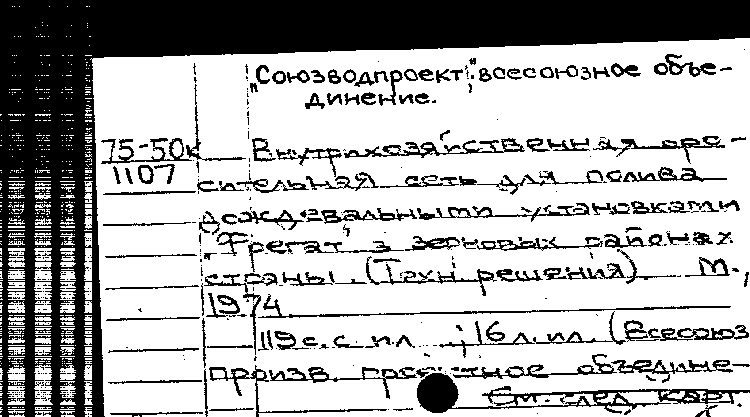 "Союзводпроект", всесоюзное объе-
динение.
75-50к Внутрихозяйственная оро-
1107 сительная сеть для полива
дождевальными установками
"Фрегат" в зерновых районах
страны. (Техн. решения). М.,
1974.
119 с. с ил.; 16 л. ил. (Всесоюз.
произв. проектное объедине-
См. след. карт.